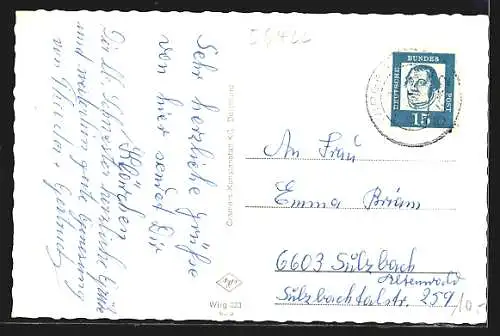 Sehr herzliche Grüße
von hier sendet Dir
Klärchen
Dir lb. Schwester herzliche Grüße
und weiterhin gute Genesung
von Theodor + Gertrud
Cramers Kunstanstalt KG, Dortmund
Wi rg 323
DEUTSCHE
BUNDES
POST
15
An Frau
Emma Briam
6603 Sulzbach
Altenwald
Sulzbachtalstr. 259
10,-